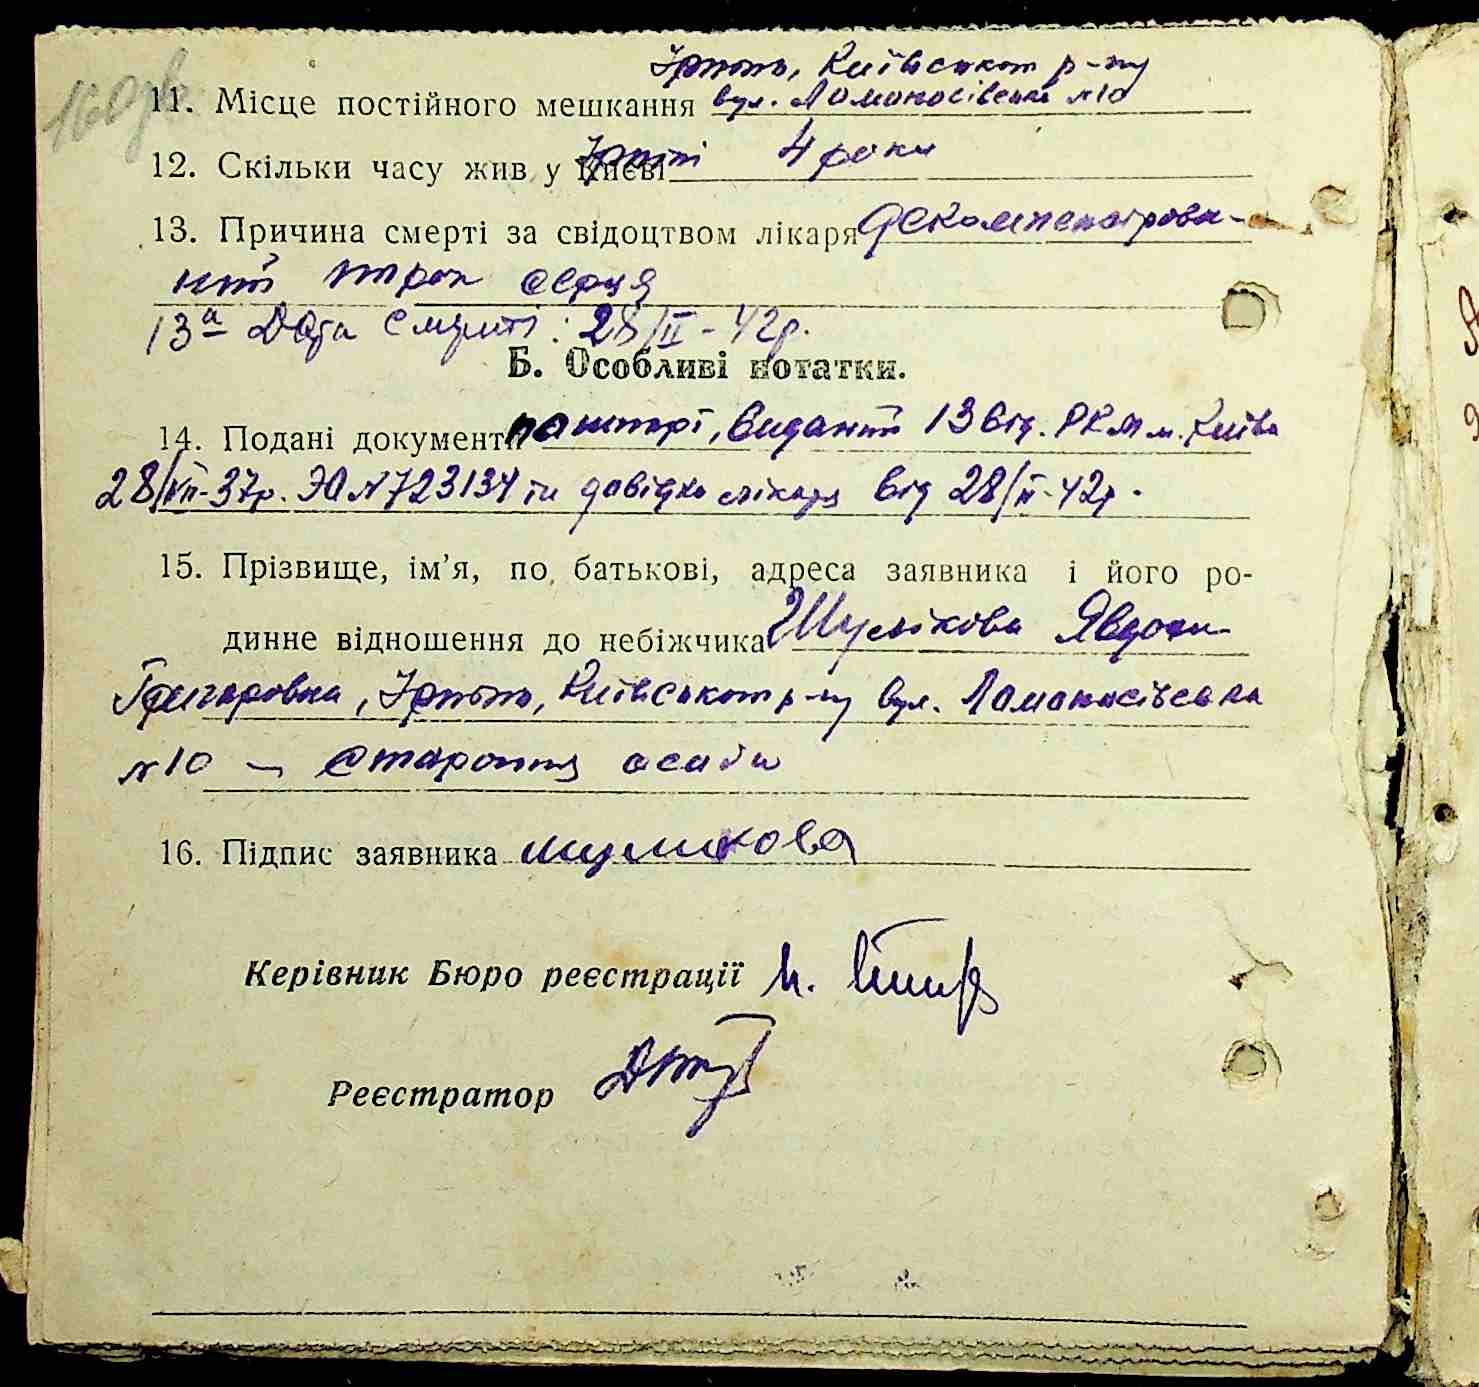 Ірпінь, Київського р-ну
11. Місце постійного мешкання вул. Ломоносівська №10
12. Скільки часу жив у Києві Ірпіні 4 роки
13. Причина смерті за свідоцтвом лікаря декомпенсірован-
ний порок серця
13а Дата смерті: 28/II-42р.
Б. Особливі нотатки.
14. Подані документи пашпорт, виданий 13 від. РКМ м. Київа
28/VII-37р. ЭО №723134 та довідка лікаря від 28/II-42р.
15. Прізвище, ім’я, по батькові, адреса заявника і його ро-
динне відношення до небіжчика Шулікова Явдоха
Григоровна, Ірпінь, Київського р-ну вул. Ломоносівська
№10 — стороння особа
16. Підпис заявника шуликова
Керівник Бюро реєстрації
Реєстратор